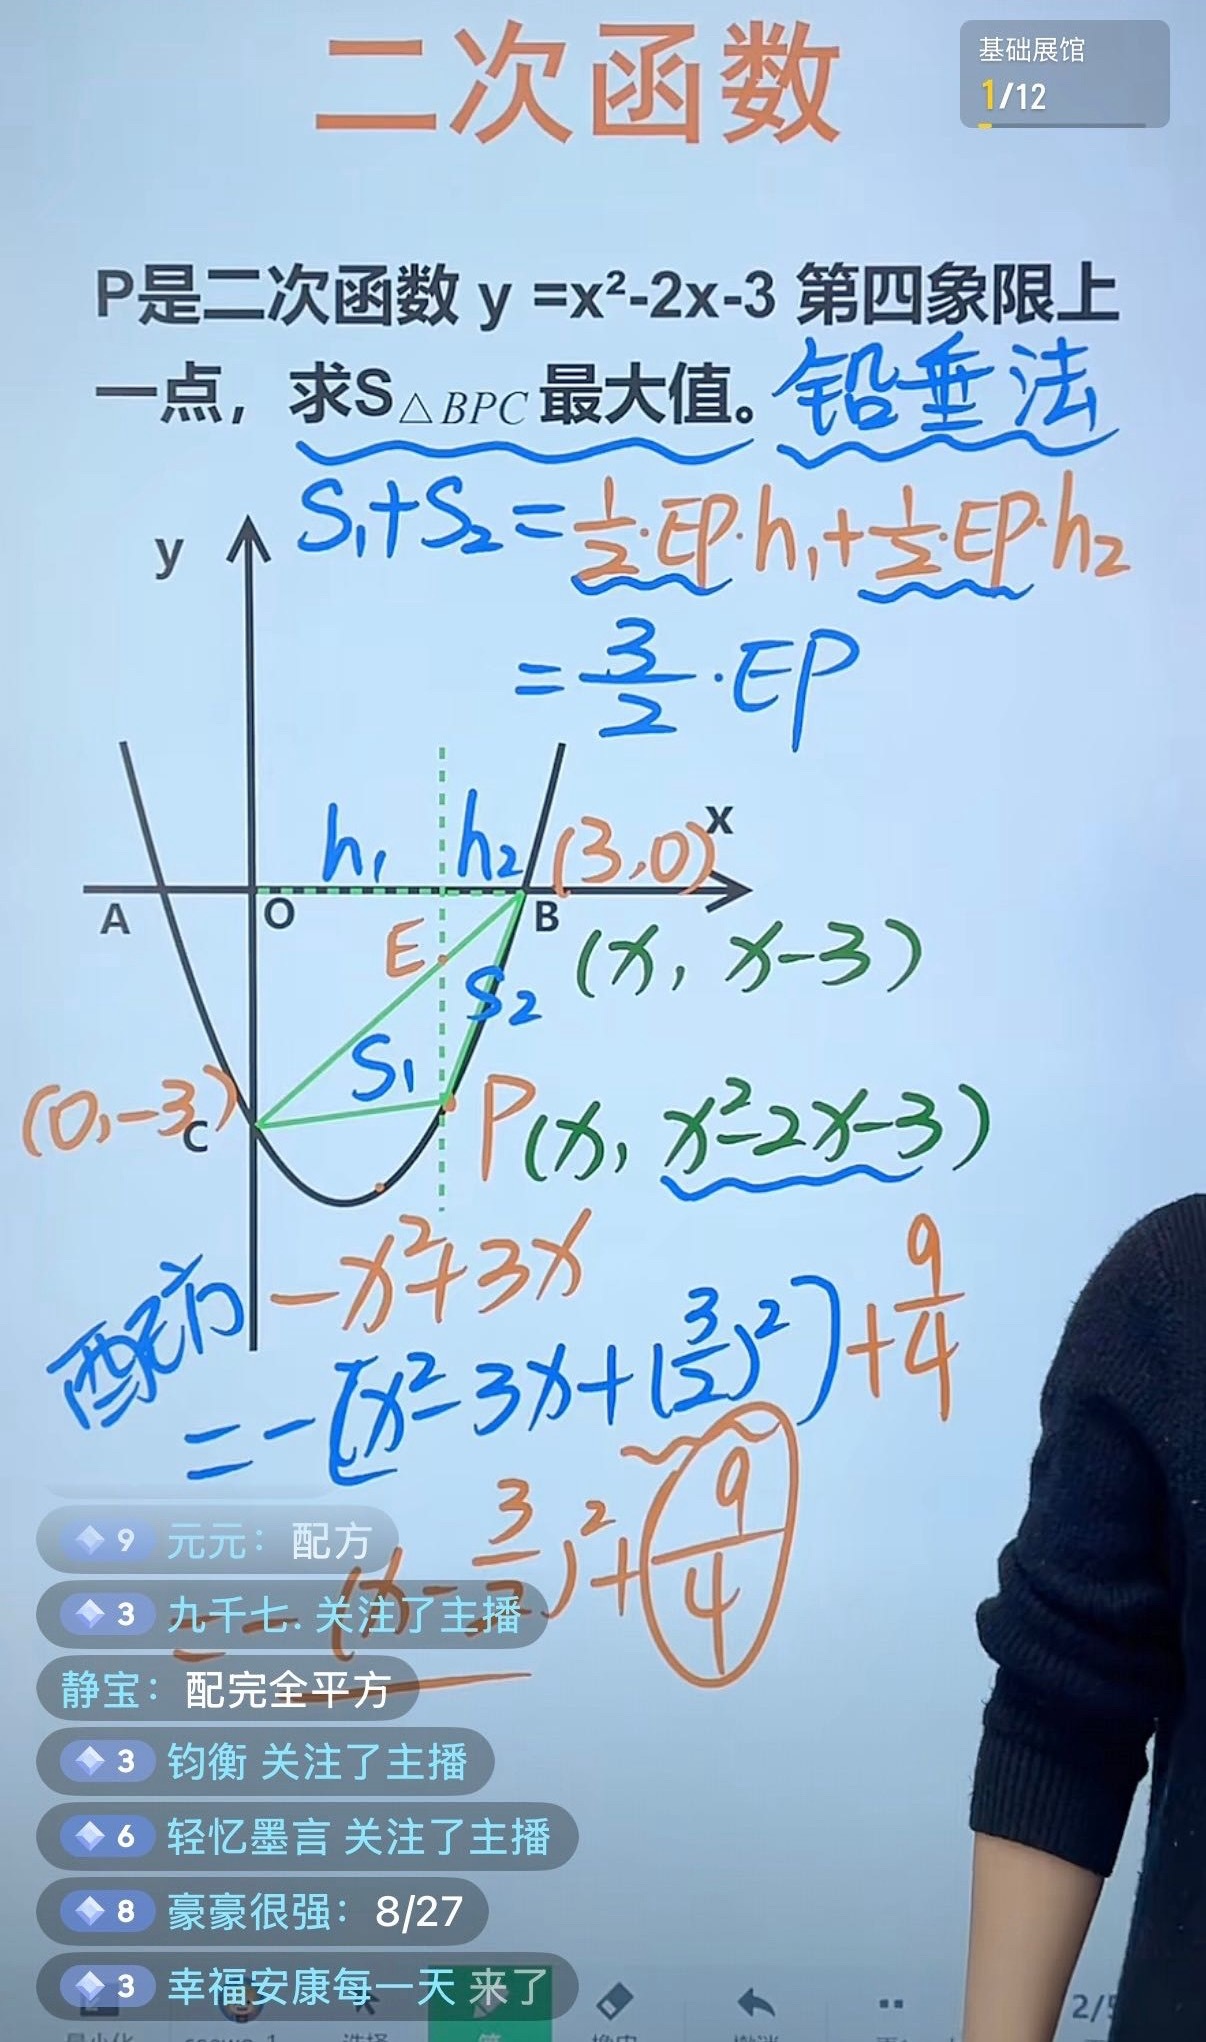 二次函数
基础展馆
1/12
P是二次函数 y =x²-2x-3 第四象限上
一点，求S△BPC 最大值。铅垂法
S₁+S₂=1/2·EP·h₁+1/2·EP·h₂
=3/2·EP
y
h₁ h₂ (3,0) x
A O B
E (x, x-3)
S₂
S₁
(0,-3) C P(x, x²-2x-3)
-x²+3x
配方
=-[x²-3x+(3/2)²]+9/4
=-(x-3/2)²+9/4
9 元元：配方
3 九千七. 关注了主播
静宝：配完全平方
3 钧衡 关注了主播
6 轻忆墨言 关注了主播
8 豪豪很强：8/27
3 幸福安康每一天 来了
2/5